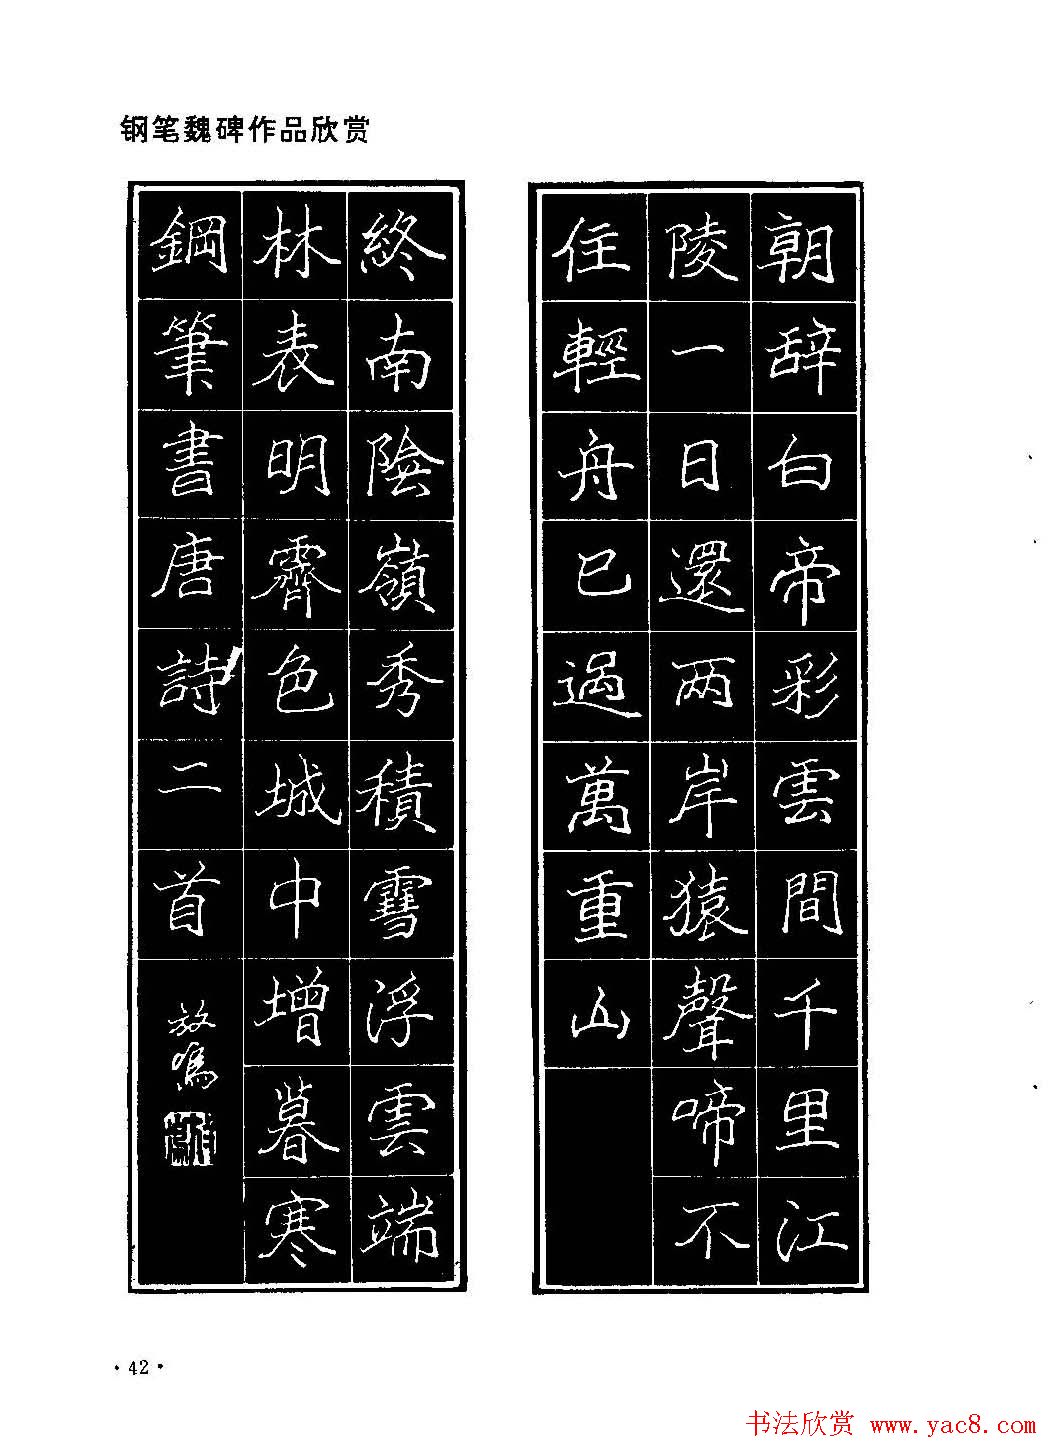 钢笔魏碑作品欣赏
朝辞白帝彩雲間千里江
陵一日還两岸猿聲啼不
住輕舟已過萬重山
終南陰嶺秀積雪浮雲端
林表明霽色城中增暮寒
鋼筆書唐詩二首
放鳴
·42·
书法欣赏 www.yac8.com